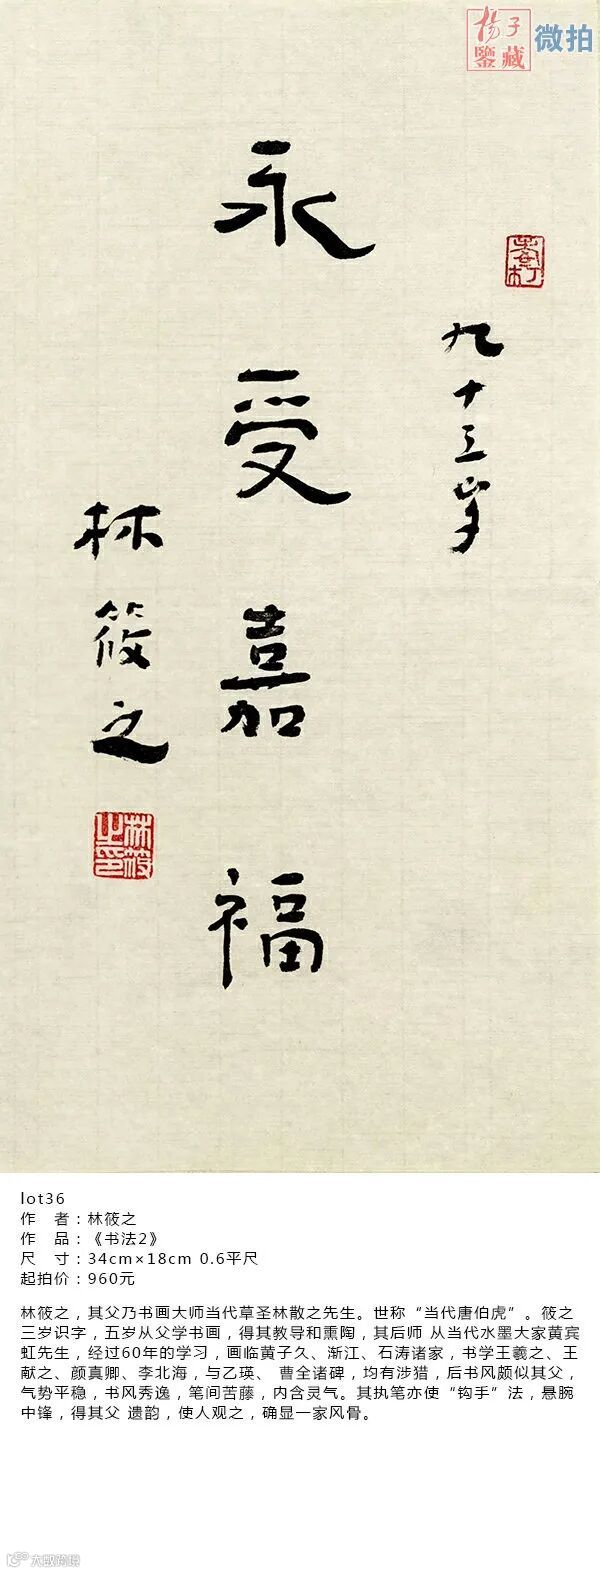 杨子
鉴藏
微拍
九十三岁
永受嘉福
林筱之
林筱之印
lot36
作 者：林筱之
作 品：《书法2》
尺 寸：34cm×18cm 0.6平尺
起拍价：960元
林筱之，其父乃书画大师当代草圣林散之先生。世称“当代唐伯虎”。筱之
三岁识字，五岁从父学书画，得其教导和熏陶，其后师 从当代水墨大家黄宾
虹先生，经过60年的学习，画临黄子久、渐江、石涛诸家，书学王羲之、王
献之、颜真卿、李北海，与乙瑛、 曹全诸碑，均有涉猎，后书风颇似其父，
气势平稳，书风秀逸，笔间苦藤，内含灵气。其执笔亦使“钩手”法，悬腕
中锋，得其父 遗韵，使人观之，确显一家风骨。